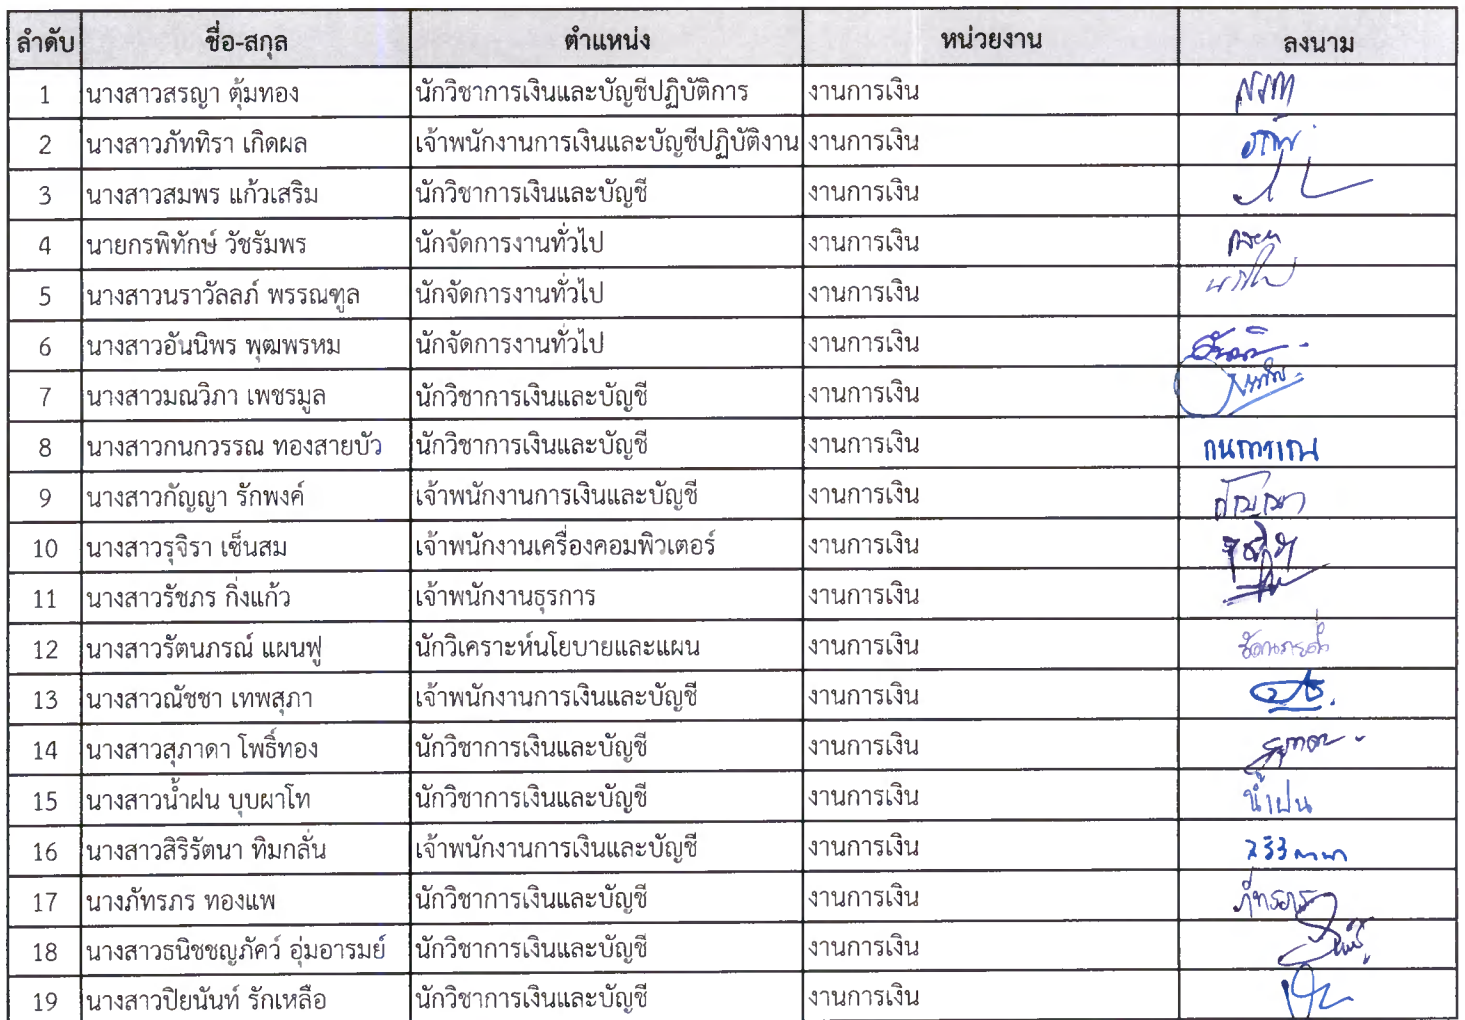 ลำดับ ชื่อ-สกุล ตำแหน่ง หน่วยงาน ลงนาม
1 นางสาวสรญา ตุ้มทอง นักวิชาการเงินและบัญชีปฏิบัติการ งานการเงิน
2 นางสาวภัททิรา เกิดผล เจ้าพนักงานการเงินและบัญชีปฏิบัติงาน งานการเงิน
3 นางสาวสมพร แก้วเสริม นักวิชาการเงินและบัญชี งานการเงิน
4 นายกรพิทักษ์ วัชรัมพร นักจัดการงานทั่วไป งานการเงิน
5 นางสาวนราวัลลภ์ พรรณฑูล นักจัดการงานทั่วไป งานการเงิน
6 นางสาวอันนิพร พุฒพรหม นักจัดการงานทั่วไป งานการเงิน
7 นางสาวมณวิภา เพชรมูล นักวิชาการเงินและบัญชี งานการเงิน
8 นางสาวกนกวรรณ ทองสายบัว นักวิชาการเงินและบัญชี งานการเงิน กนกวรรณ
9 นางสาวกัญญา รักพงค์ เจ้าพนักงานการเงินและบัญชี งานการเงิน
10 นางสาวรุจิรา เซ็นสม เจ้าพนักงานเครื่องคอมพิวเตอร์ งานการเงิน
11 นางสาวรัชภร กิ่งแก้ว เจ้าพนักงานธุรการ งานการเงิน
12 นางสาวรัตนภรณ์ แผนฟู นักวิเคราะห์นโยบายและแผน งานการเงิน
13 นางสาวณัชชา เทพสุภา เจ้าพนักงานการเงินและบัญชี งานการเงิน
14 นางสาวสุภาดา โพธิ์ทอง นักวิชาการเงินและบัญชี งานการเงิน
15 นางสาวน้ำฝน บุบผาโท นักวิชาการเงินและบัญชี งานการเงิน น้ำฝน
16 นางสาวสิริรัตนา ทิมกลั่น เจ้าพนักงานการเงินและบัญชี งานการเงิน
17 นางภัทรภร ทองแพ นักวิชาการเงินและบัญชี งานการเงิน ภัทรภร
18 นางสาวธนิชชญภัคว์ อุ่มอารมย์ นักวิชาการเงินและบัญชี งานการเงิน
19 นางสาวปิยนันท์ รักเหลือ นักวิชาการเงินและบัญชี งานการเงิน